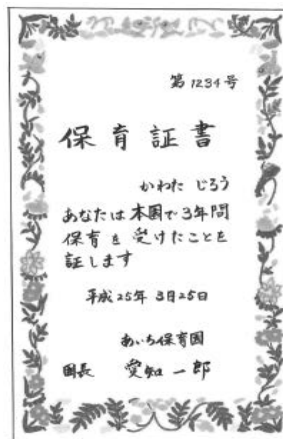 第1234号
保育証書
かわた じろう
あなたは本園で3年間
保育を受けたことを
証します
平成25年3月25日
あいち保育園
園長 愛知一郎